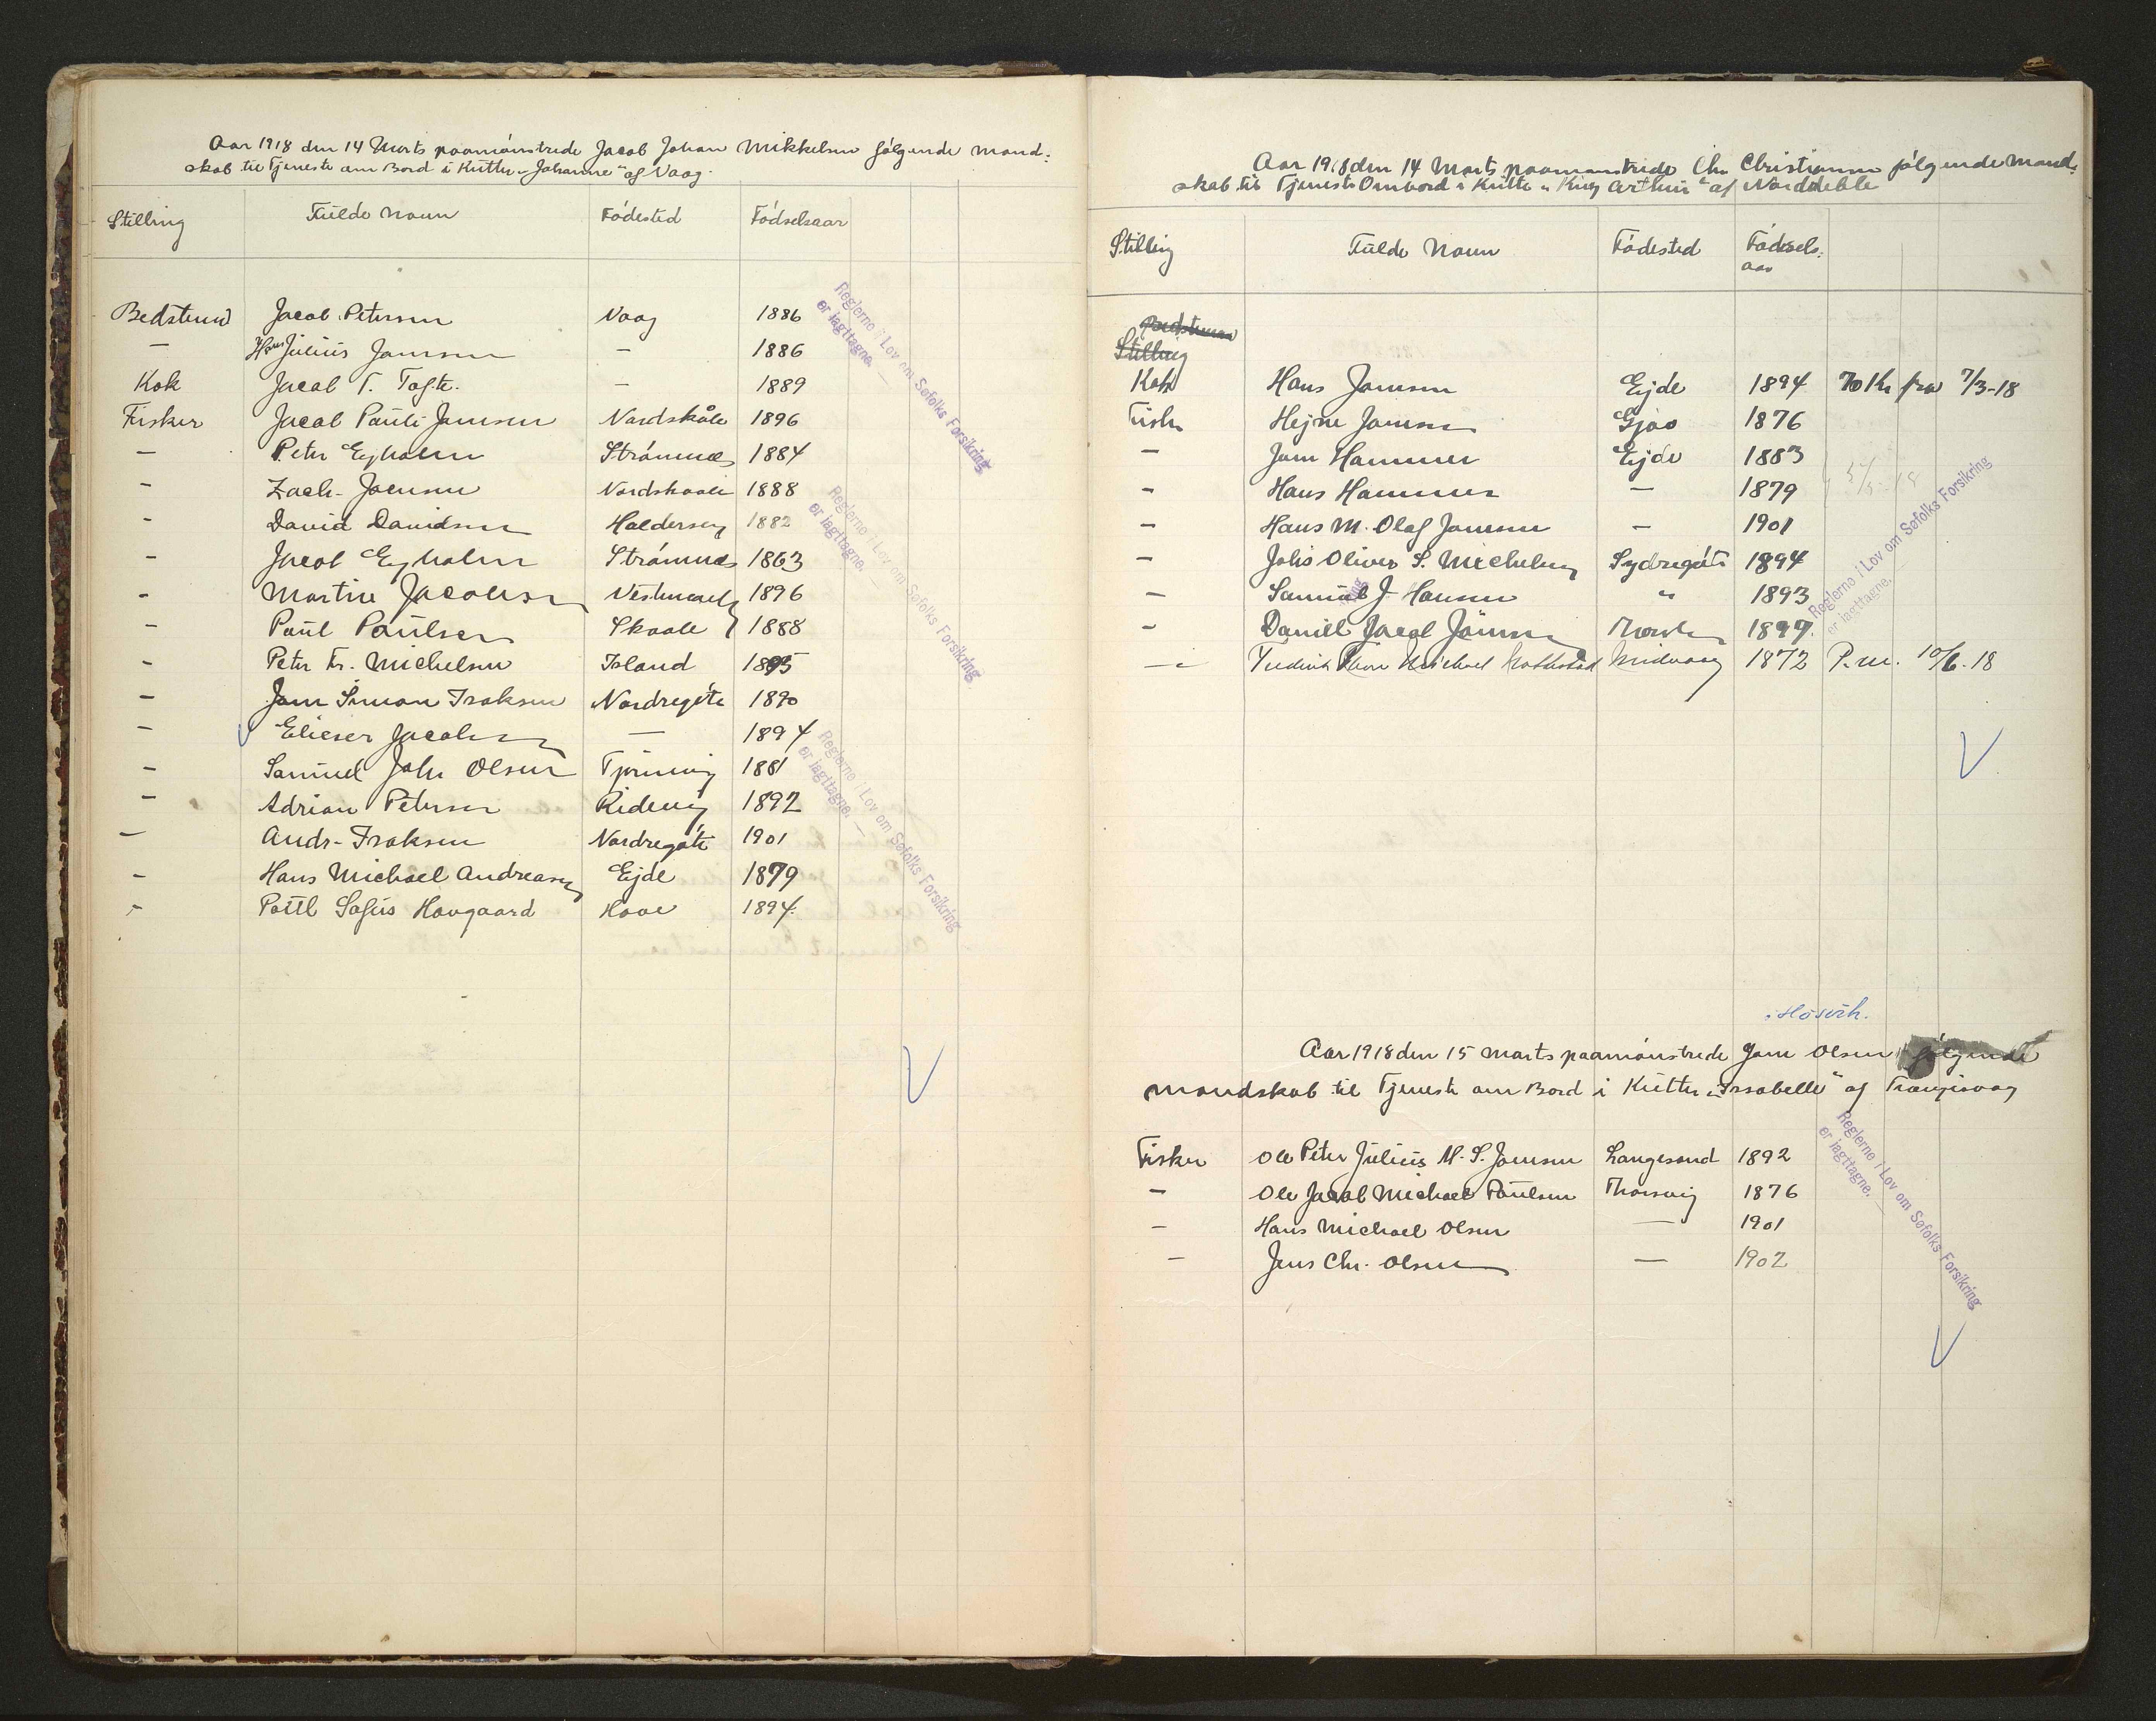 Aar 1918 den 14 Marts paamønstrede Jacob Johan Mikkelsen følgende Mand-
skab til Tjeneste om Bord i Kutter "Johanne" af Vaag.
Stilling Fulde Navn Fødested Fødselsaar
Bedstemd Jacob Petersen Vaag 1886
— Hans Julius Joensen — 1886
Kok Jacob T. Tofte. — 1889
Fisker Jacob Pauli Joensen Nordskåle 1896
— Peter Eyholm Strømnæs 1884
- Zach. Joensen Nordskaale 1888
- David Davidsen Haldersvig 1882
- Jacob Eyholm Strømnæs 1863
- Martin Jacobsen Vestmanh 1896
- Poul Poulsen Skaale 1888
- Peter Fr. Michelsen Island 1895
- Joen Simon Isaksen Nordregøte 1890
- Elieser Jacobsen — 1894
- Samuel Joh. Olsen Tjørnevig 1881
- Adrian Petersen Ridevig 1892
— Andr. Isaksen Nordregøte 1901
- Hans Michael Andreasen Ejde 1879
- Poul Sofus Hovgaard Hove 1894.
Reglerne i Lov om Søfolks Forsikring
er iagttagne. —
Reglerne i Lov om Søfolks Forsikring
er iagttagne. —
Reglerne i Lov om Søfolks Forsikring
er iagttagne. —
Aar 1918 den 14 Marts paamønstrede Chr. Christiansen følgende Mand-
skab til Tjeneste Ombord i Kutter "King Arthur" af Norddeble
Stilling Fulde Navn Fødested Fødsels-
aar
Bedstemand
Stilling
Kok Hans Joensen Ejde 1894 70 Kr fra 7/3-18
Fisker Hejne Joensen Gjov 1876
— Joen Hammer Ejde 1883
- Hans Hammer — 1879
- Hans M. Olaf Joensen — 1901
- Johs Oliver S. Michelsen Sydregøte 1894
- Samuel J. Hansen " 1893
- Daniel Jacob Joensen 1897.
Michael Midvaag 1872 P.m. 10/6.18
Reglerne i Lov om Søfolks Forsikring
er iagttagne.
Hósvík.
Aar 1918 den 15 Marts paamønstrede Joen Olsen følgende
Mandskab til Tjeneste om Bord i Kutter "Issabelle" af Trangisvaag
Fisker Ole Peter Julius M. S. Joensen Langesand 1892
— Ole Jacob Michael Poulsen Thorsvig 1876
— Hans Michael Olsen — 1901
— Jens Chr. Olsen — 1902
Reglerne i Lov om Søfolks Forsikring
er iagttagne. —